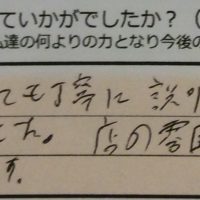 ていかがでしたか？（
達の何よりの力となり今後の
ても丁寧に説
した。店の雰
す。